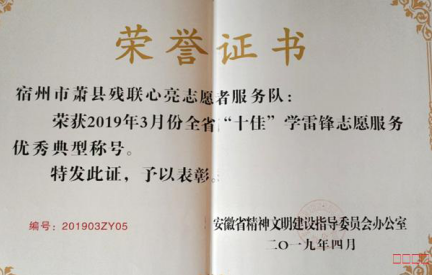 荣誉证书
宿州市萧县残联心亮志愿者服务队：
荣获2019年3月份全省“十佳”学雷锋志愿服务
优秀典型称号。
特发此证，予以表彰。
编号：201903ZY05
安徽省精神文明建设指导委员会办公室
二〇一九年四月